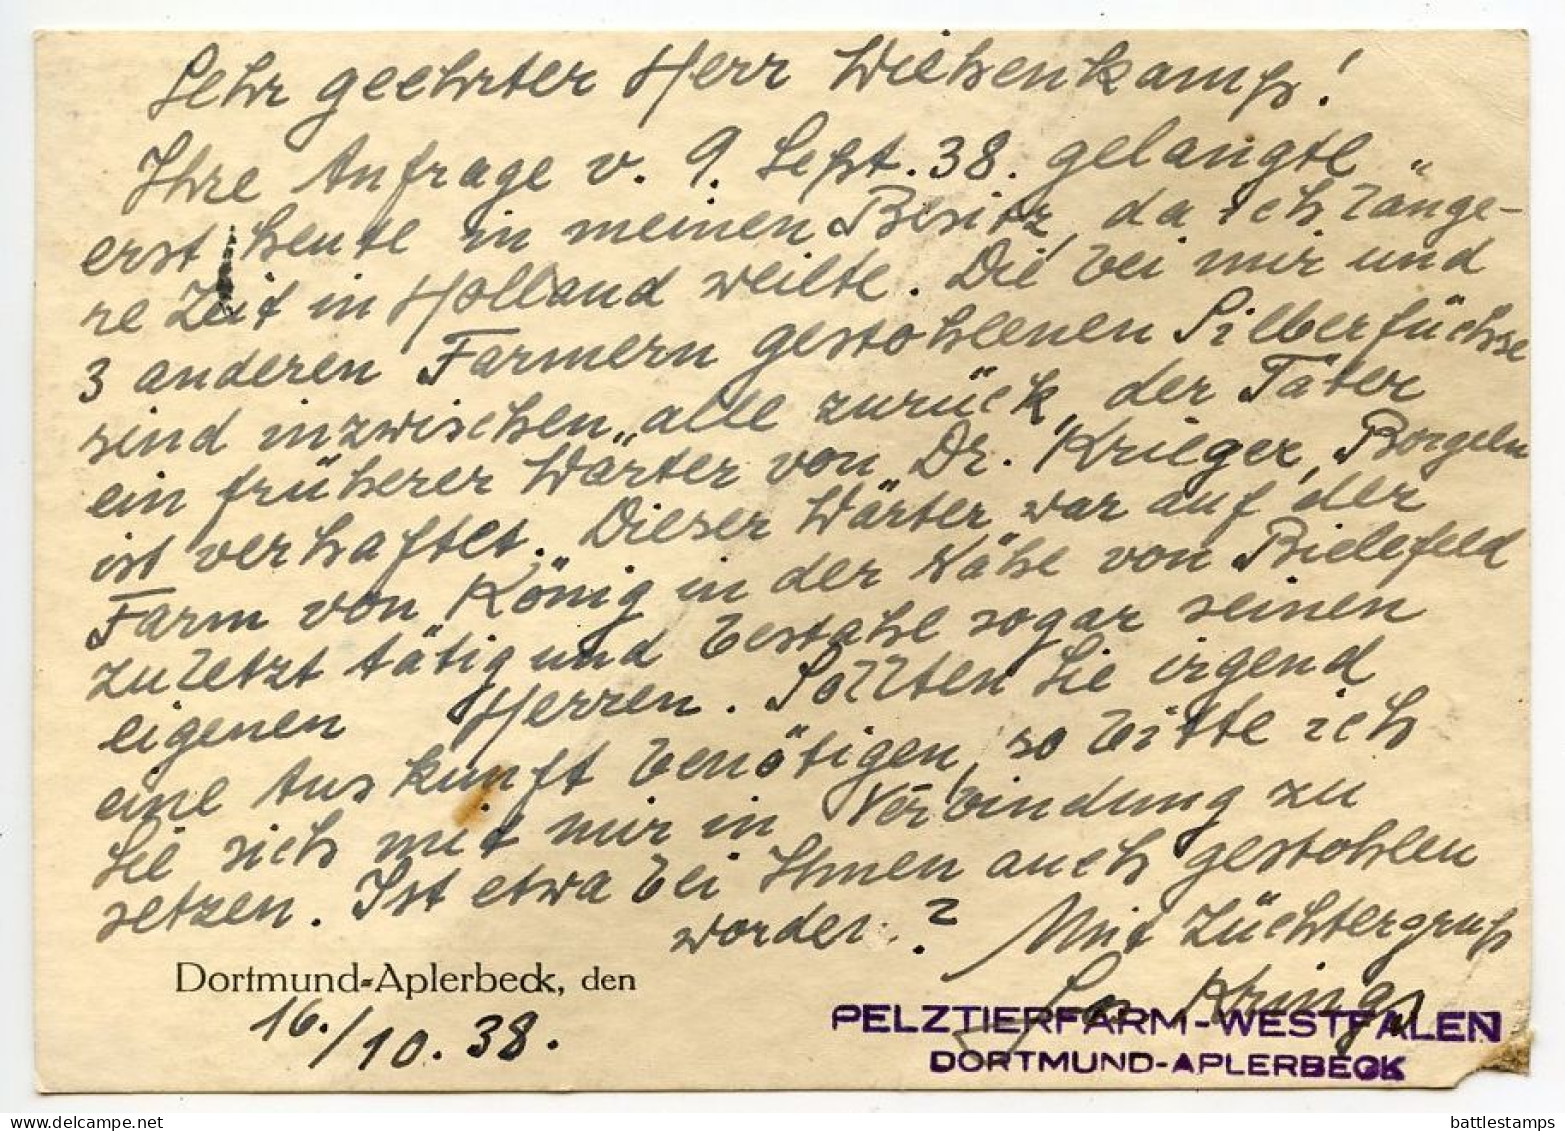 Sehr geehrter Herr Wiehenkamp!
Ihre Anfrage v. 9. Sept. 38. gelangte
erst heute in meinen Besitz, da ich länge-
re Zeit in Holland weilte. Die bei mir und
3 anderen Farmern gestohlenen Silberfüchse
sind inzwischen alle zurück, der Täter
ein früherer Wärter von Dr. Krieger, Borgeln
ist verhaftet. Dieser Wärter war auf der
Farm von König in der Nähe von Bielefeld
zuletzt tätig und bestahl sogar seinen
eigenen Herren. Sollten Sie irgend
eine Auskunft benötigen, so bitte ich
Sie sich mit mir in Verbindung zu
setzen. Ist etwa bei Ihnen auch gestohlen
worden.? Mit Züchtergruß
Dortmund-Aplerbeck, den
16./10. 38.
Krings
PELZTIERFARM-WESTFALEN
DORTMUND-APLERBECK
delcampe.net
battlestamps